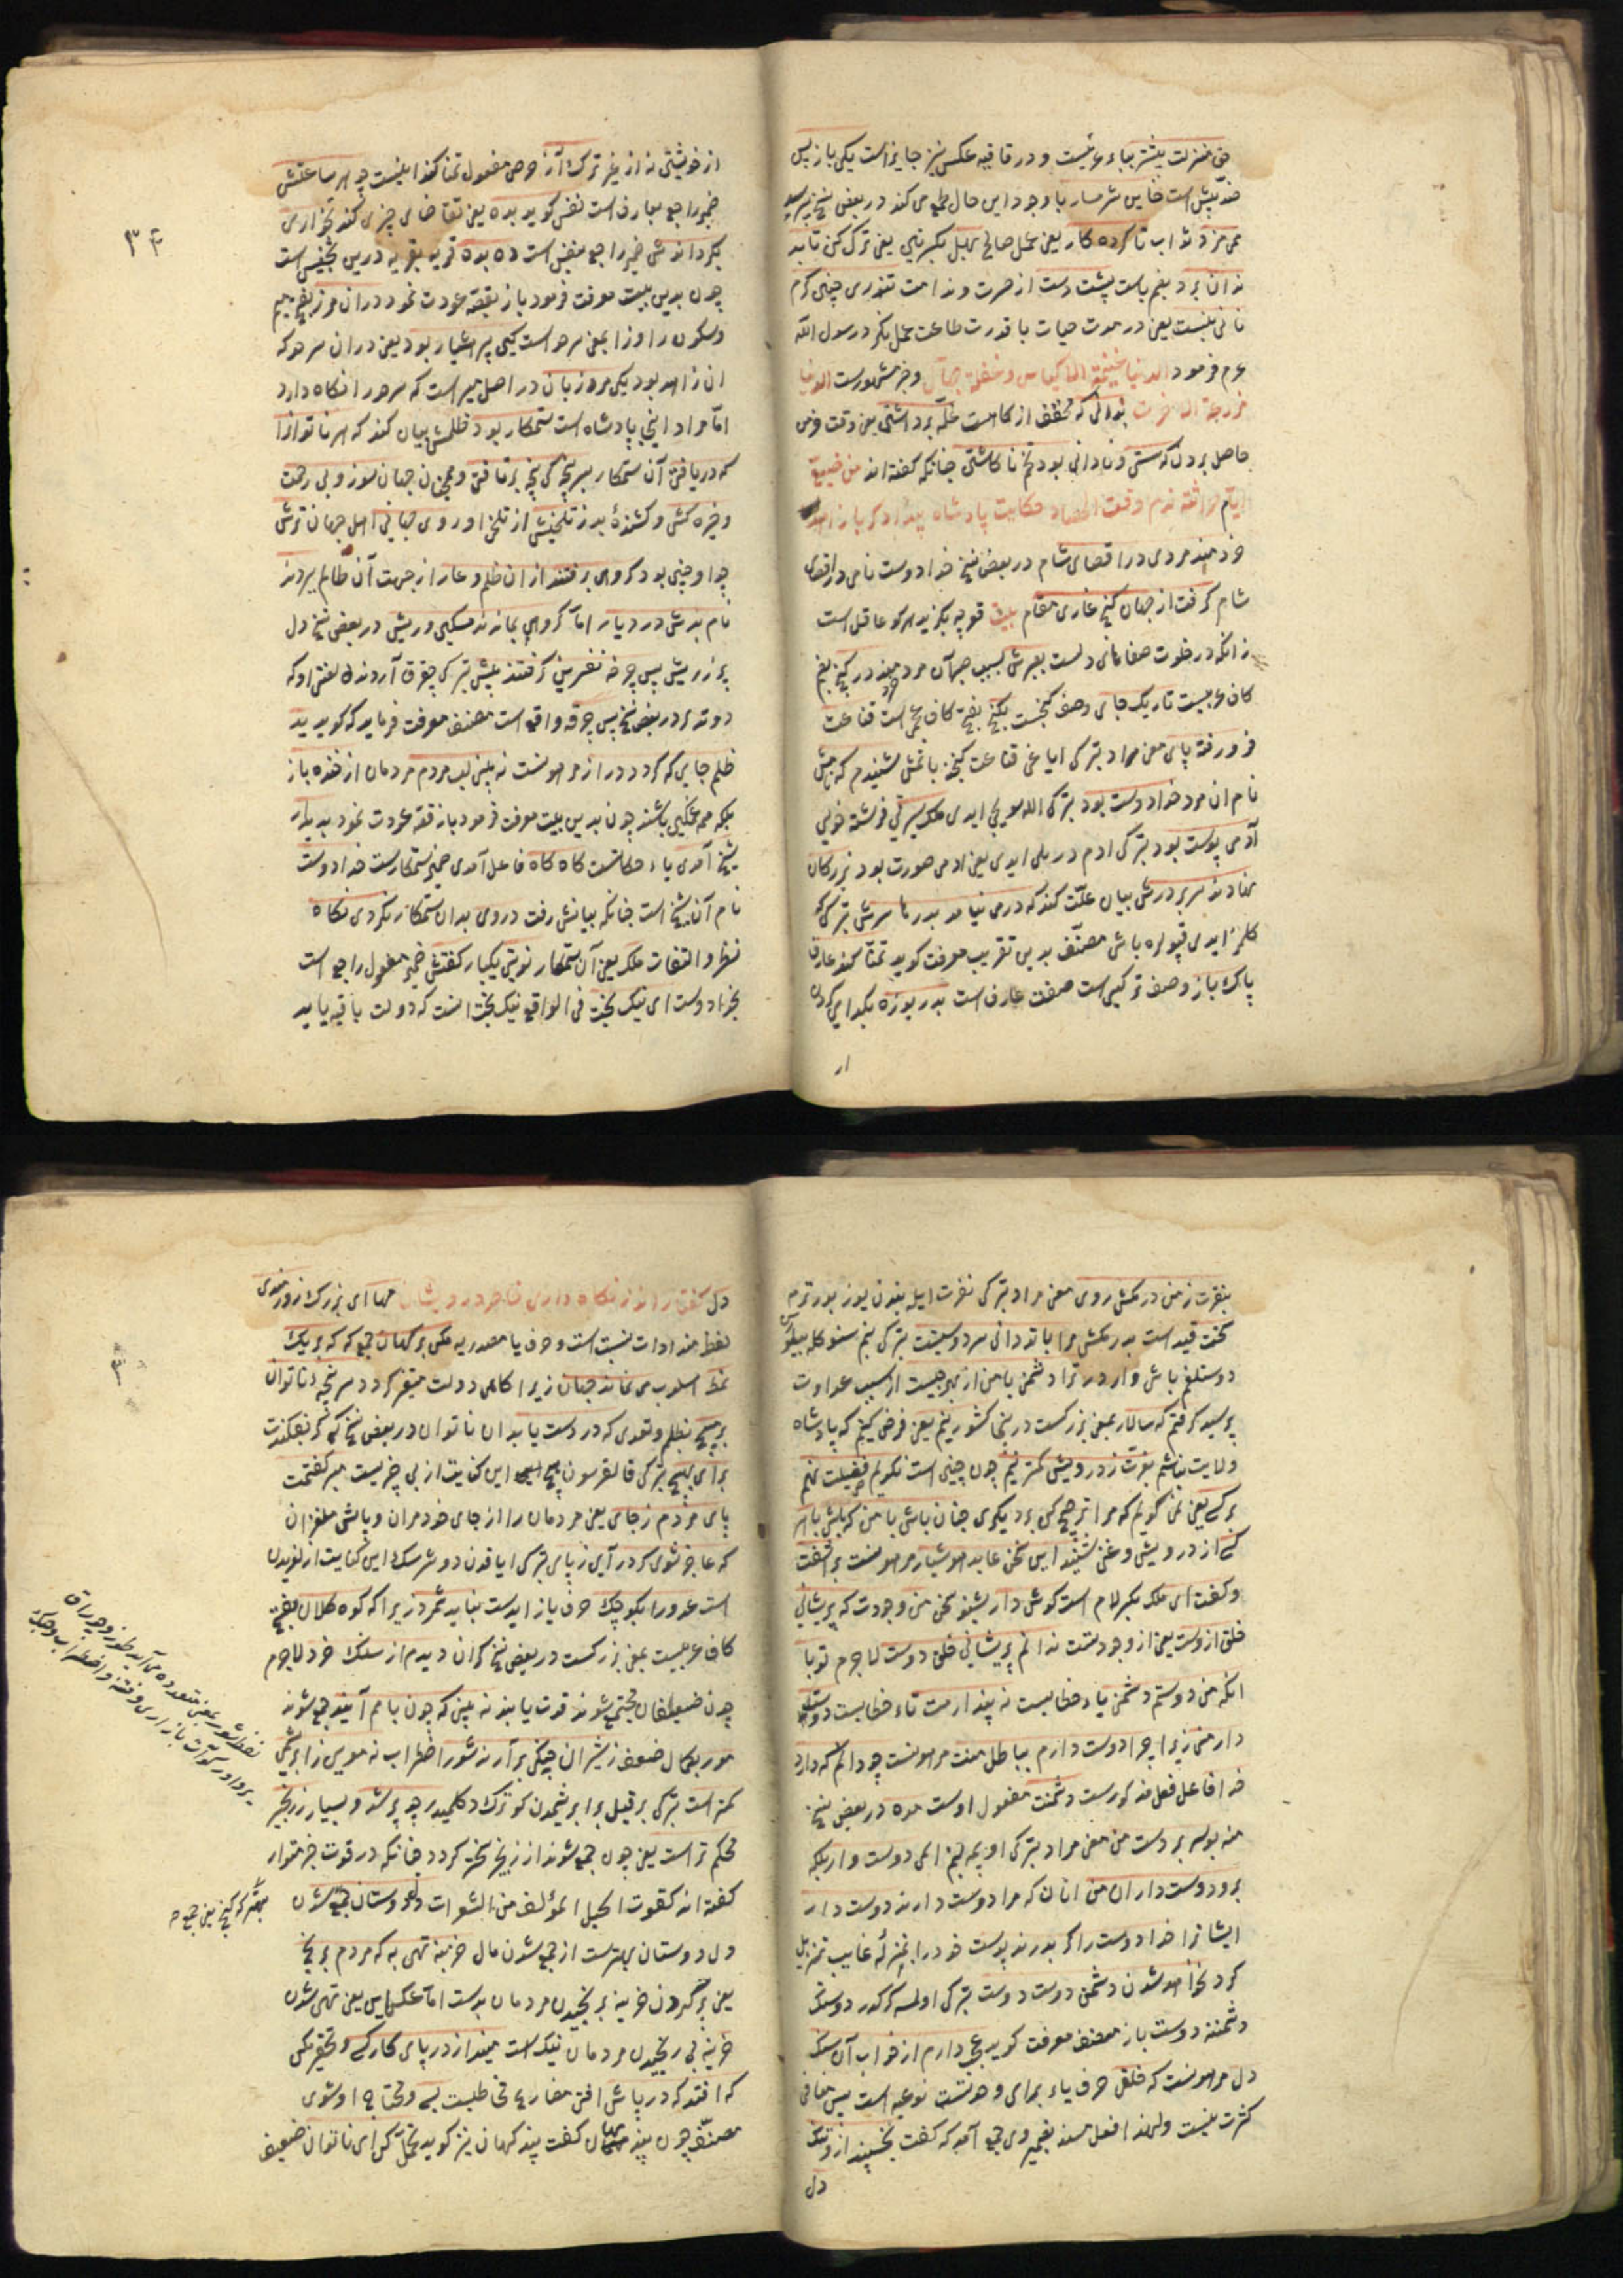 حق منزلت بیشتر بباء عربیست و در قافیه عکس نیز جایز است یکی باز پس
خائن شرمسار با وجود این حال طمع می کند در بعض نسخ
مزد ثواب ناکرده کار یعنی عمل صالح
ندان برد بضم یاست پشت دست از حسرت و ندامت تنوری چنین گرم
نانی نبست یعنی در مدت حیات با قدرت طاعت عمل بکن رسول الله
عم فرمود الدنیا
مزرعة الاخرت بدانی که مخفف از گاه است غله برداشتن یعنی وقت خرمن
حاصل بر دل که سستی و نادانی بود تخم ناکاشتن چنانکه گفته اند من ضیع
ایام حراثته ندم وقت الحصاد حکایت پادشاه بیدادگر با زاهد
خردمند مردی در اقصای شام در بعض نسخ خدادوست نامی در اقصای
شام گرفت از جهان کنج غاری مقام بیت قوچه بکزید هرکو عاقل است
زانکه در خلوت صفاهای دلست بصبرش بسبب صبر آن مرد در کنج بضم
کاف عربیست تاریک جای وصف کنجست بکنج بفتح کاف عجمی است قناعت
فرو رفته پای معنی مراد بترکی ایاغی قناعت کنجنه باتمش شنیدم که نامش
نام ان مرد خدادوست بود بترکی الله سویجی ایدی ملک سیرتی فرشته خویی
آدمی پوست بود بترکی ادم دریلی ایدی یعنی ادمی صورت بود بزرگان
نهادند سر بر درش بیان علت کند که درمی نیامد بدرها سرش بترکی
کلمز ایدی قپولره باش مصنف بدین تقریب معرفت گوید تمنا کند عارف
پاک باز وصف ترکیبی است صفت عارف است بدریوزه بگدایی کردن
از
۳۴
از خویشتن نه از غیر ترک آز حرص مفعول تمنا کند ایست چو هر ساعتش
ضمیر راجع بعارف است نفس گوید بده یعنی تقاضای چیزی کند بخواری
بگرداندش ضمیر راجع بنفس است ده بده قریه بقریه درین تجنیس است
چون بدین بیت معرفت فرمود باز بقصه عودت نمود در ان مرز بفتح میم
وسکون را وزا بمعنی سرحد است کین پیر هشیار بود یعنی در ان سرحد که
ان زاهد بود یکی مرزبان در اصل میر است که سرحد را نگاه دارد
اما مراد اینجا پادشاه است ستمکار بود ظلمش بیان کند که هر ناتوان را
که دریافتی آن ستمکار بسر پنجه کی پنجه برتافتی و همچنان جهان سوز و بی رحمت
و خیره کش و کشندۀ بد ز تلخیش از تلخی او روی جهانی اهل جهان ترش
چو او چنین بود گروهی برفتند از ان ظلم و عار از جهت آن ظالم ببردند
نام بدش در دیار اما گروهی بماندند مسکین وریش در بعض نسخ دل
پر ز ریش پس چرخه نفرین گرفتند پیش بترکی چقرق آردنده لعنتی اوکه
دوتدی در بعض نسخ پس چرخه واقع است مصنف معرفت فرماید که گوید ید
ظلم جایی که گردد دراز مرهونست نه بینی لب مردم مردمان از خنده باز
بلکه همه غمگین باشند چون بدین بیت معرفت فرمود باز بقصه عودت نمود بدیدار
شیخ آمدی یاء حکایتست گاه گاه فاعل آمدی ضمیر ستمکارست خدادوست
نام آن شیخ است چنانکه بیانش رفت در وی بدان ستمکار نکردی نگاه
نظر و التفات ملک یعنی آن ستمکار نوبتی یکبار گفتش ضمیر مفعول راجع است
بخدادوست ای نیک بخت فی الواقع نیک بخت انست که دولت باقیه یابد
بنفرت ز من در مکش روی معنی مراد بترکی نفرت ایله بندن یوز بورترمه
سخت قید است بدر مکش مرا با تو دانی سر دوستیست بترکی بنم سنوکله بیلورسن
دوستلغم باشی واردر ترا دشمنی با من از بهر چیست از سبب عداوت
پرسید گرفتم که سالار بمعنی بزرگست درینجا کشور نیم یعنی فرض کنیم که پادشاه
ولایت نباشم بعزت ز درویش کمتر نیم چون چنین است نگویم فضیلت نهم
بر کسی یعنی نمی گویم که مرا ترجیح کن بر دیگری چنان باش با من که باش باهر
کس از درویش و غنی شنید این سخن عابد هوشیار مرهونست بر آشفت
و گفت ای ملک بکسر لام است گوش دار بشنو سخن من وجودت که پریشانی
خلق ازوست یعنی از وجود تست ندانم پریشانی خلق دوست لاجرم تو با
انکه من دوستم دشمنی یاء خطابیست نه پندارمت تاء خطابست دوستدار
دار منی زیرا چرا دوست دارم بباطل منت مرهونست چو دانم که دارد
خدا فاعل فعل مذکورست دشمنت مفعول اوست مده در بعض نسخ
منه بوسه بر دست من معنی مراد بترکی اوپمه بنم المی دوست وار بلکه
برو دوستداران من انان که مرا دوست دارند دوست دار
ایشانرا خدادوست را گر بدرند پوست خود را بمنزلۀ غایب تنزیل
کرد نخواهد شدن دشمن دوست دوست بترکی اولمسه کرکدر دوستک
دشمننه دوست باز مصنف معرفت گوید عجب دارم از خواب آن سنگ
دل مرهونست که خلق حرف یاء برای وحدتست نوعیه است پس منافی
کثرت نیست ولهذا فعل مسند بضمیر وی جمع آمد که گفت بخسپند ازو تنگ
دل
۳
دل گفتار اندر نگاه داری خاطر درویشان مها ای بزرگ زورمندی
لفظ مند ادات نسبت است وحرف یا مصدریه مکن بر کهان جمع که که بر یک
نمط اسلوب می نماند جهان زیرا گاهی دولت متغیر گردد سر پنجه ناتوان
بر مپیچ بظلم و تعدی که در دست یابد ان ناتوان در بعض نسخ که گر
بر آیی بهیچ بترکی این کنایت از بی چیزیست مبر گفتمت
پای مردم ز جای یعنی مردمان را از جای خود مران و پایش ملغزان
که عاجز شوی گر در آیی ز پای بترکی ایاقدن دوشرسک این کنایت از لغزیدن
است عدو را بکوچک حرف یا زایدست نباید شمرد زیرا که کوه کلان بفتح
کاف عربیست بمعنی بزرگست در بعض نسخ کران دیدم از سنگ خرد لاجرم
چون ضعیفان مجتمع شوند قوت یابند نه بینی که چون با هم آیند جمع شوند
مور بکمال ضعف ز شیران جنگی برآرند شور اضطراب نه موی ز ابریشمی
کمتر است بترکی بر قیل بر ابریشمدن کوترک دکلمیدر چو پر شد و بسیار ز زنجیر
محکم تر است یعنی چون جمع شوند از زنجیر سختر گردد چنانکه در قوت خبر متواتر
گفته اند کقوت الحبل المؤلف من الشعرات دل دوستان جمع شدن
دل دوستان بهترست از جمع شدن مال خزینه تهی به که مردم برنج
یعنی پر کردن خزینه برنجیدن مردمان بدست اما عکس این یعنی تهی شدن
خزینه بی رنجیدن مردمان نیک است مینداز در پای کار کسی وتحقیر مکن
که افتد که در پایش افتی مضارع مخاطبست بسی ومحتاج او شوی
مصنف چون پند مهان گفت پند کهان نیز گوید تحمل کن ای ناتوان ضعیف